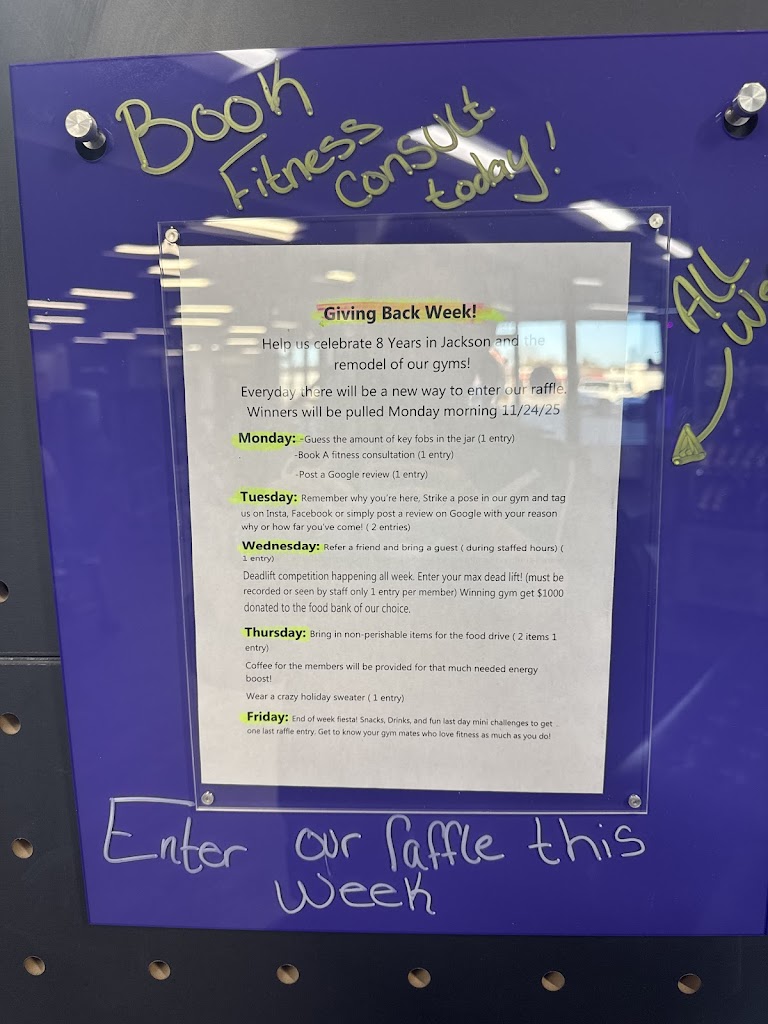 Book
Fitness
Consult
today!
ALL
Giving Back Week!
Help us celebrate 8 Years in Jackson and the
remodel of our gyms!
Everyday there will be a new way to enter our raffle.
Winners will be pulled Monday morning 11/24/25
Monday: -Guess the amount of key fobs in the jar (1 entry)
-Book A fitness consultation (1 entry)
-Post a Google review (1 entry)
Tuesday: Remember why you're here, Strike a pose in our gym and tag
us on Insta, Facebook or simply post a review on Google with your reason
why or how far you've come! ( 2 entries)
Wednesday: Refer a friend and bring a guest ( during staffed hours) (
1 entry)
Deadlift competition happening all week. Enter your max dead lift! (must be
recorded or seen by staff only 1 entry per member) Winning gym get $1000
donated to the food bank of our choice.
Thursday: Bring in non-perishable items for the food drive ( 2 items 1
entry)
Coffee for the members will be provided for that much needed energy
boost!
Wear a crazy holiday sweater ( 1 entry)
Friday: End of week fiesta! Snacks, Drinks, and fun last day mini challenges to get
one last raffle entry. Get to know your gym mates who love fitness as much as you do!
Enter our raffle this
week